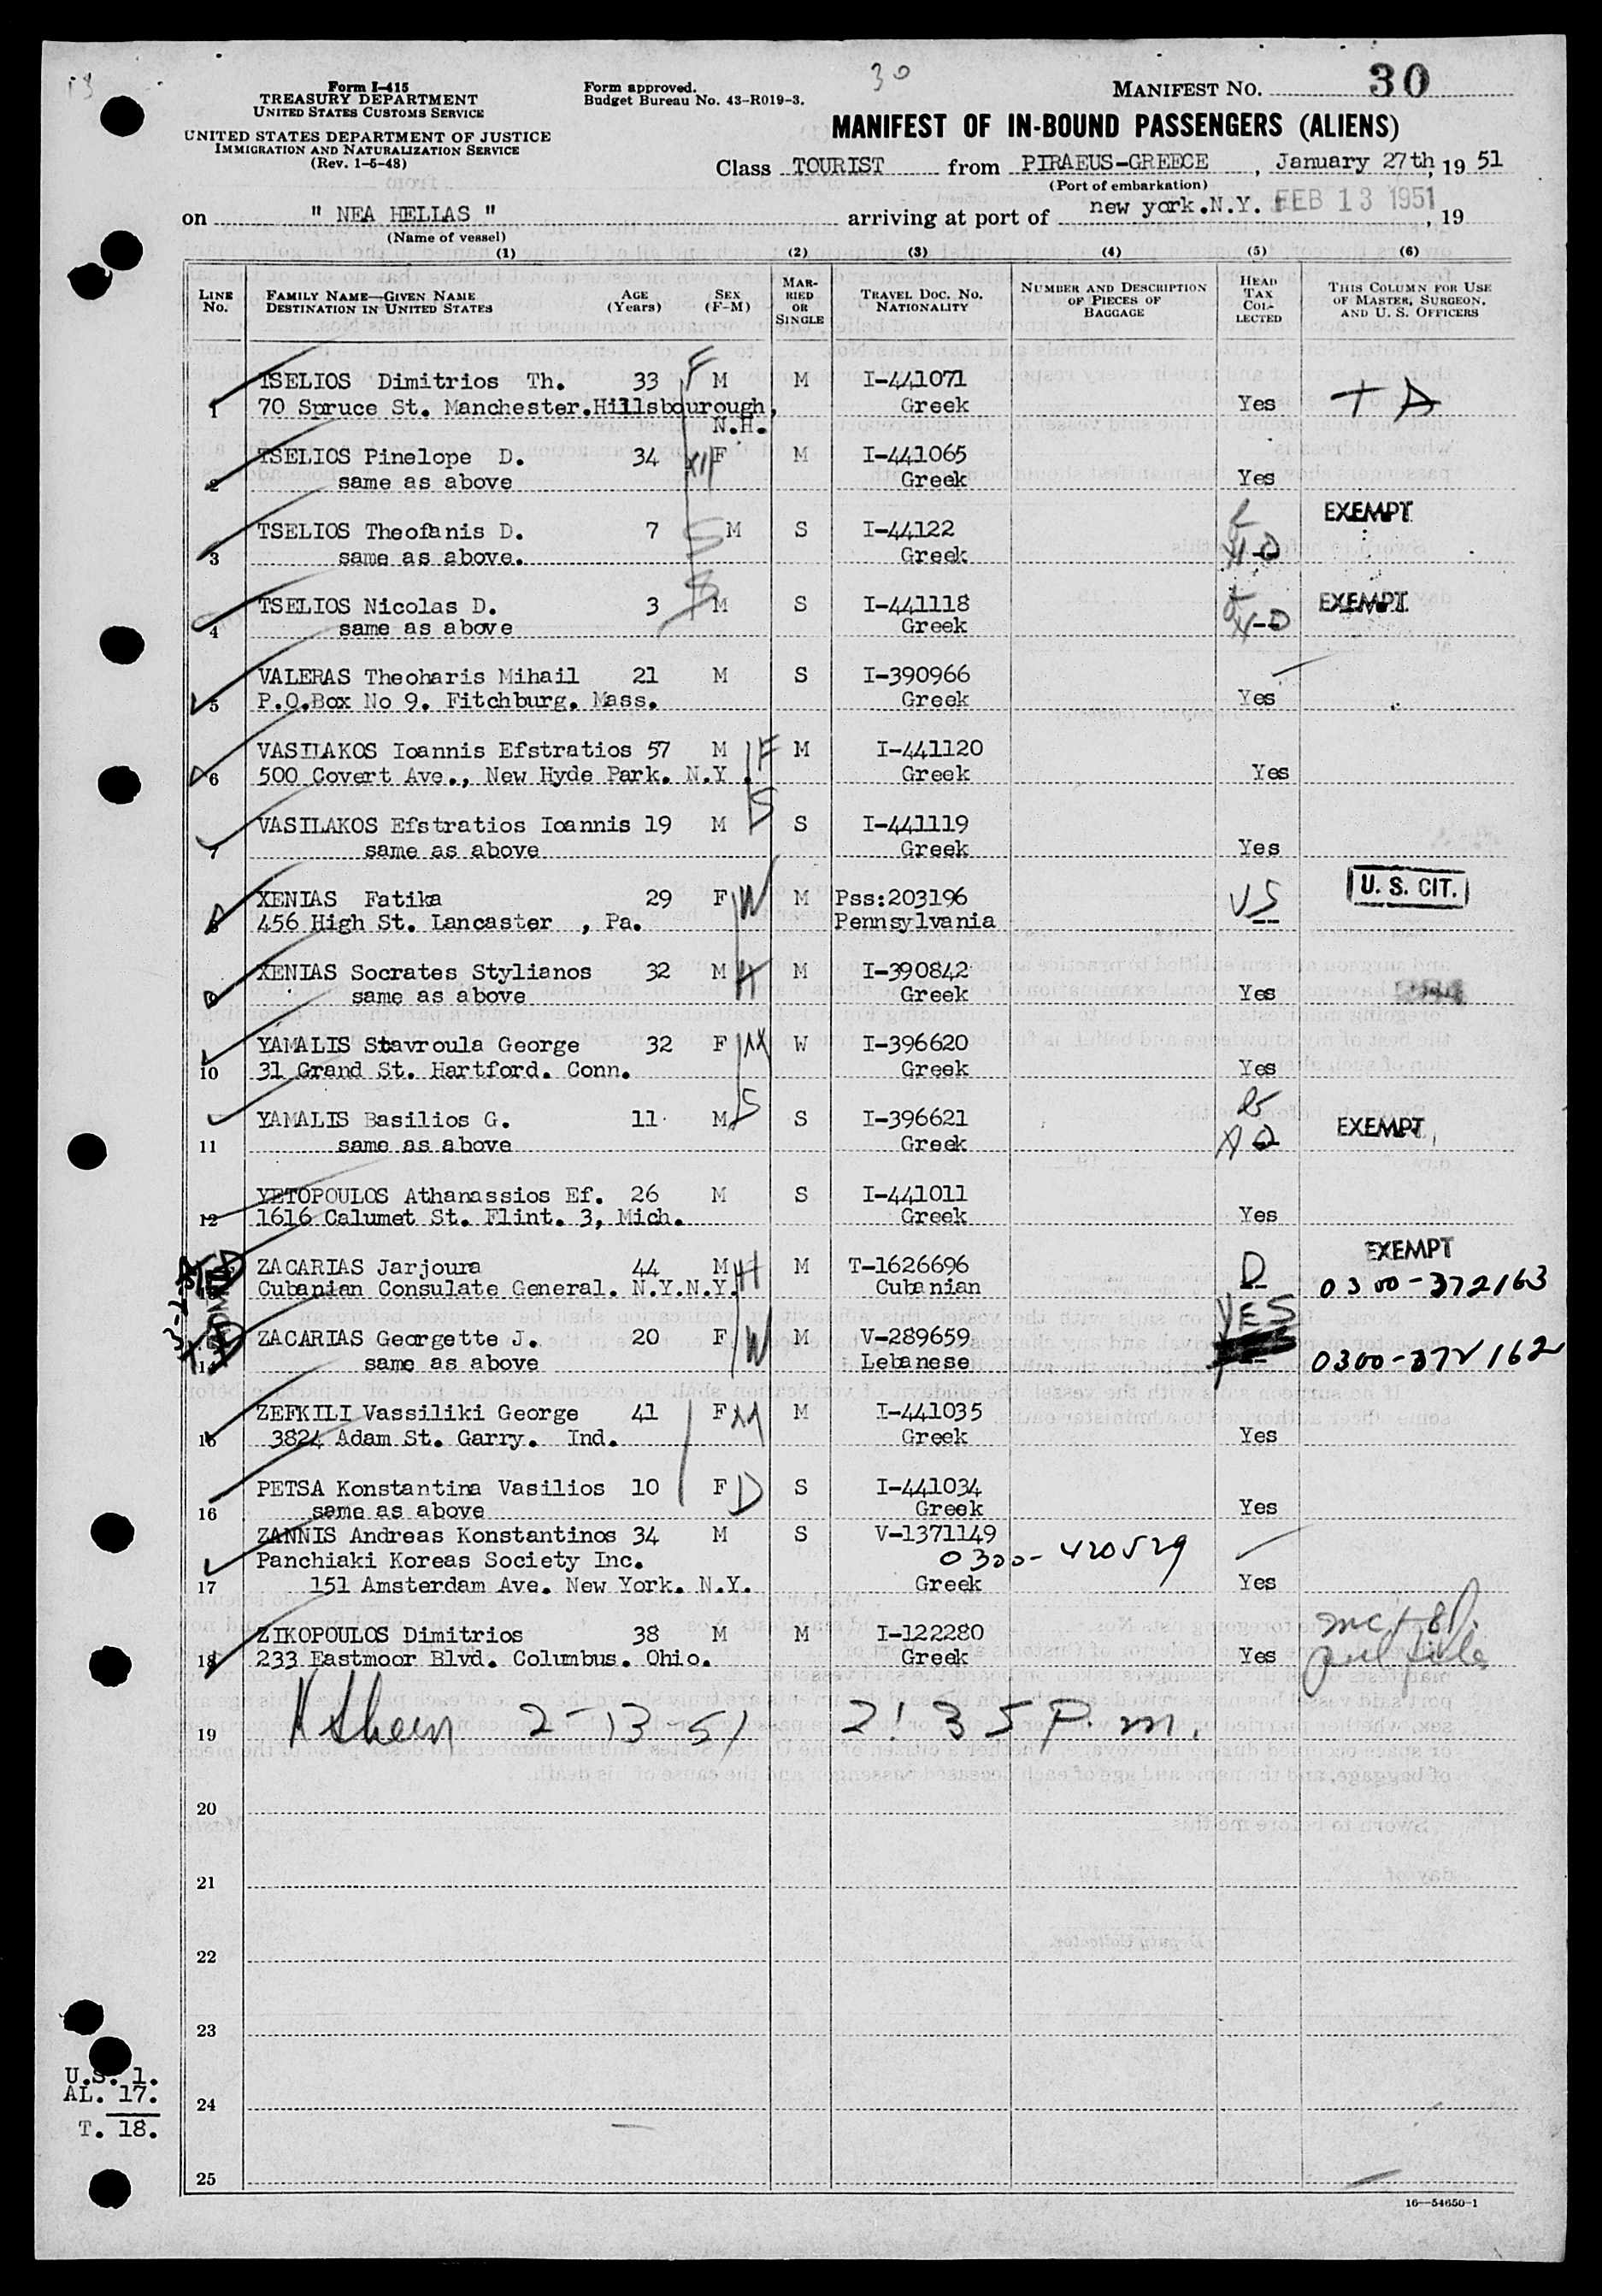 30
Form I-415
TREASURY DEPARTMENT
UNITED STATES CUSTOMS SERVICE
UNITED STATES DEPARTMENT OF JUSTICE
IMMIGRATION AND NATURALIZATION SERVICE
(Rev. 1-5-48)
Form approved.
Budget Bureau No. 43-R019-3.
MANIFEST NO. 30
MANIFEST OF IN-BOUND PASSENGERS (ALIENS)
Class TOURIST from PIRAEUS-GREECE, January 27th, 19 51
(Port of embarkation)
on " NEA HELLAS " arriving at port of new york.N.Y. FEB 13 1951, 19
(Name of vessel)
(1) (2) (3) (4) (5) (6)
LINE NO. FAMILY NAME—GIVEN NAME DESTINATION IN UNITED STATES AGE (Years) SEX (F-M) MARRIED OR SINGLE TRAVEL DOC. NO. NATIONALITY NUMBER AND DESCRIPTION OF PIECES OF BAGGAGE HEAD TAX COLLECTED THIS COLUMN FOR USE OF MASTER, SURGEON, AND U. S. OFFICERS
TSELIOS Dimitrios Th. 33 F M M I-441071
1 70 Spruce St. Manchester.Hillsbourough, Greek Yes T A
N.H.
TSELIOS Pinelope D. 34 F M I-441065
2 same as above Greek Yes
EXEMPT
TSELIOS Theofanis D. 7 S M S I-44122
3 same as above. Greek
TSELIOS Nicolas D. 3 S M S I-441118 EXEMPT
4 same as above Greek
VALERAS Theoharis Mihail 21 M S I-390966
5 P.O.Box No 9. Fitchburg. Mass. Greek Yes
VASILAKOS Ioannis Efstratios 57 M F M I-441120
6 500 Covert Ave., New Hyde Park. N.Y. Greek Yes
VASILAKOS Efstratios Ioannis 19 M S S I-441119
7 same as above Greek Yes
XENIAS Fatika 29 F W M Pss:203196 US U. S. CIT.
8 456 High St. Lancaster , Pa. Pennsylvania --
XENIAS Socrates Stylianos 32 M H M I-390842
9 same as above Greek Yes
YAMALIS Stavroula George 32 F M W I-396620
10 31 Grand St. Hartford. Conn. Greek Yes
YAMALIS Basilios G. 11 M S S I-396621 EXEMPT
11 same as above Greek
YETOPOULOS Athanassios Ef. 26 M S I-441011
12 1616 Calumet St. Flint. 3, Mich. Greek Yes
EXEMPT
ZACARIAS Jarjoura 44 M H M T-1626696 D
13 Cubanian Consulate General. N.Y.N.Y. Cubanian 0300-372163
YES
ZACARIAS Georgette J. 20 F W M V-289659
14 same as above Lebanese 0300-372162
ZEFKILI Vassiliki George 41 F M M I-441035
15 3824 Adam St. Garry. Ind. Greek Yes
PETSA Konstantina Vasilios 10 F D S I-441034
16 same as above Greek Yes
ZANNIS Andreas Konstantinos 34 M S V-1371149
Panchiaki Koreas Society Inc. 0300-420529
17 151 Amsterdam Ave. New York. N.Y. Greek Yes
ZIKOPOULOS Dimitrios 38 M M I-122280
18 233 Eastmoor Blvd. Columbus. Ohio. Greek Yes
19 2-13-51 2:35 P.m.
20
21
22
23
24
25
U.S. 1.
AL. 17.
T. 18.
16—54650-1